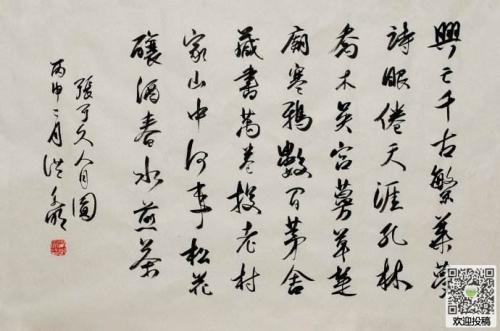 興亡千古繁華夢
詩眼倦天涯孔林
喬木吳宮蔓草楚
廟寒鴉數間茅舍
藏書萬卷投老村
家山中何事松花
釀酒春水煎茶
張可久人月圓
丙申二月
欢迎投稿